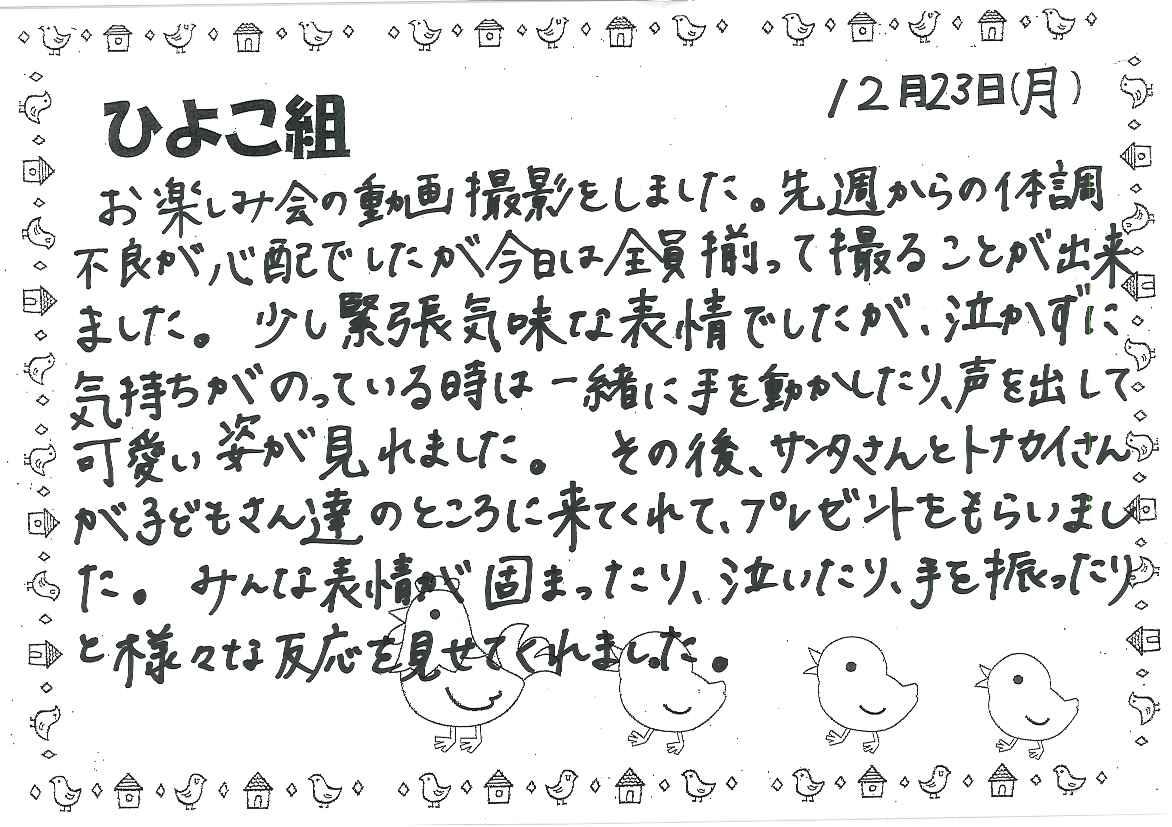 12月23日(月)
ひよこ組
お楽しみ会の動画撮影をしました。先週からの体調
不良が心配でしたが今日は全員揃って撮ることが出来
ました。 少し緊張気味な表情でしたが、泣かずに
気持ちがのっている時は一緒に手を動かしたり、声を出して
可愛い姿が見れました。 その後、サンタさんとトナカイさん
が子どもさん達のところに来てくれて、プレゼントをもらいまし
た。 みんな表情が固まったり、泣いたり、手を振ったり
と様々な反応を見せてくれました。